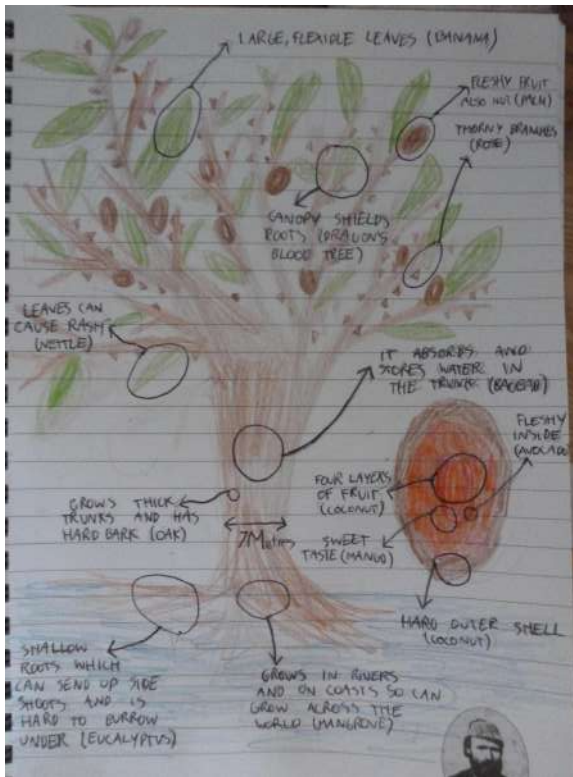 LARGE, FLEXIBLE LEAVES (BANANA)
FLESHY FRUIT
ALSO NUT (PALM)
THORNY BRANCHES
(ROSE)
CANOPY SHIELDS
ROOTS (DRAGONS
BLOOD TREE)
LEAVES CAN
CAUSE RASH
(NETTLE)
IT ABSORBS AND
STORES WATER IN
THE TRUNK (BAOBAB)
FLESHY
INSIDE
(AVOCADO)
FOUR LAYERS
OF FRUIT
(COCONUT)
GROWS THICK
TRUNKS AND HAS
HARD BARK (OAK)
7Metres
SWEET
TASTE (MANGO)
HARD OUTER SHELL
(COCONUT)
SHALLOW
ROOTS WHICH
CAN SEND UP SIDE
SHOOTS AND IS
HARD TO BURROW
UNDER (EUCALYPTUS)
GROWS IN RIVERS
AND ON COASTS SO CAN
GROW ACROSS THE
WORLD (MANGROVE)